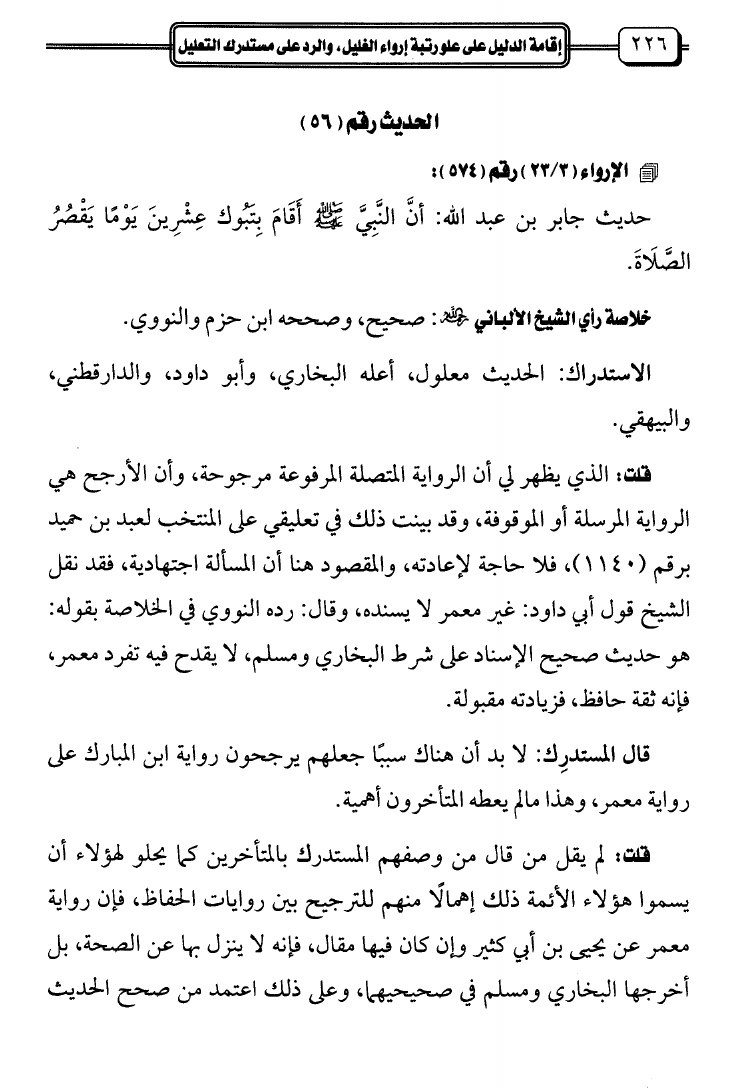 ٢٢٦
إقامة الدليل على علو رتبة إرواء الغليل، والرد على مستدرك التعليل
الحديث رقم (٥٦)
الإرواء (٢٣/٣) رقم (٥٧٤):
حديث جابر بن عبد الله: أنَّ النَّبِيَّ ﷺ أَقَامَ بِتَبُوك عِشْرِينَ يَوْمًا يَقْصُرُ
الصَّلَاةَ.
خلاصة رأي الشيخ الألباني رحمه الله: صحيح، وصححه ابن حزم والنووي.
الاستدراك: الحديث معلول، أعله البخاري، وأبو داود، والدارقطني،
والبيهقي.
قلت: الذي يظهر لي أن الرواية المتصلة المرفوعة مرجوحة، وأن الأرجح هي
الرواية المرسلة أو الموقوفة، وقد بينت ذلك في تعليقي على المنتخب لعبد بن حميد
برقم (١١٤٠)، فلا حاجة لإعادته، والمقصود هنا أن المسألة اجتهادية، فقد نقل
الشيخ قول أبي داود: غير معمر لا يسنده، وقال: رده النووي في الخلاصة بقوله:
هو حديث صحيح الإسناد على شرط البخاري ومسلم، لا يقدح فيه تفرد معمر،
فإنه ثقة حافظ، فزيادته مقبولة.
قال المستدرِك: لا بد أن هناك سببًا جعلهم يرجحون رواية ابن المبارك على
رواية معمر، وهذا مالم يعطه المتأخرون أهمية.
قلت: لم يقل من قال من وصفهم المستدرك بالمتأخرين كما يحلو لهؤلاء أن
يسموا هؤلاء الأئمة ذلك إهمالًا منهم للترجيح بين روايات الحفاظ، فإن رواية
معمر عن يحيى بن أبي كثير وإن كان فيها مقال، فإنه لا ينزل بها عن الصحة، بل
أخرجها البخاري ومسلم في صحيحيهما، وعلى ذلك اعتمد من صحح الحديث